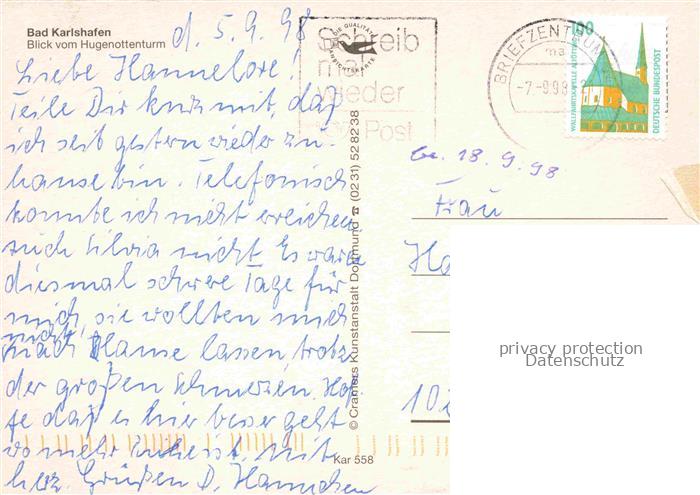 Bad Karlshafen
Blick vom Hugenottenturm
d. 5.9.98
Liebe Hannelore!
Teile Dir kurz mit, daß
ich seit gestern wieder zu
hause bin. Telefonisch
konnte ich nicht erreichen
auch Silvia nicht. Es waren
diesmal schwere Tage für
mich, sie wollten mich
nicht
nach Hause lassen trotz
der großen Schmerzen. Hof
fe daß es hier besser geht
wo mehr Ruhe ist. Mit
herz. Grüßen D. Hannchen
Schreib
mal
wieder
Post
DIE QUALITÄTS
ANSICHTSKARTE
BRIEFZENTRUM
-7.-9.98
100
WALLFAHRTSKAPELLE ALTÖTTING
DEUTSCHE BUNDESPOST
© Cramers Kunstanstalt Dortmund ☎ (0231) 528238
be. 18.9.98
Frau
Ha
10
Kar 558
privacy protection
Datenschutz